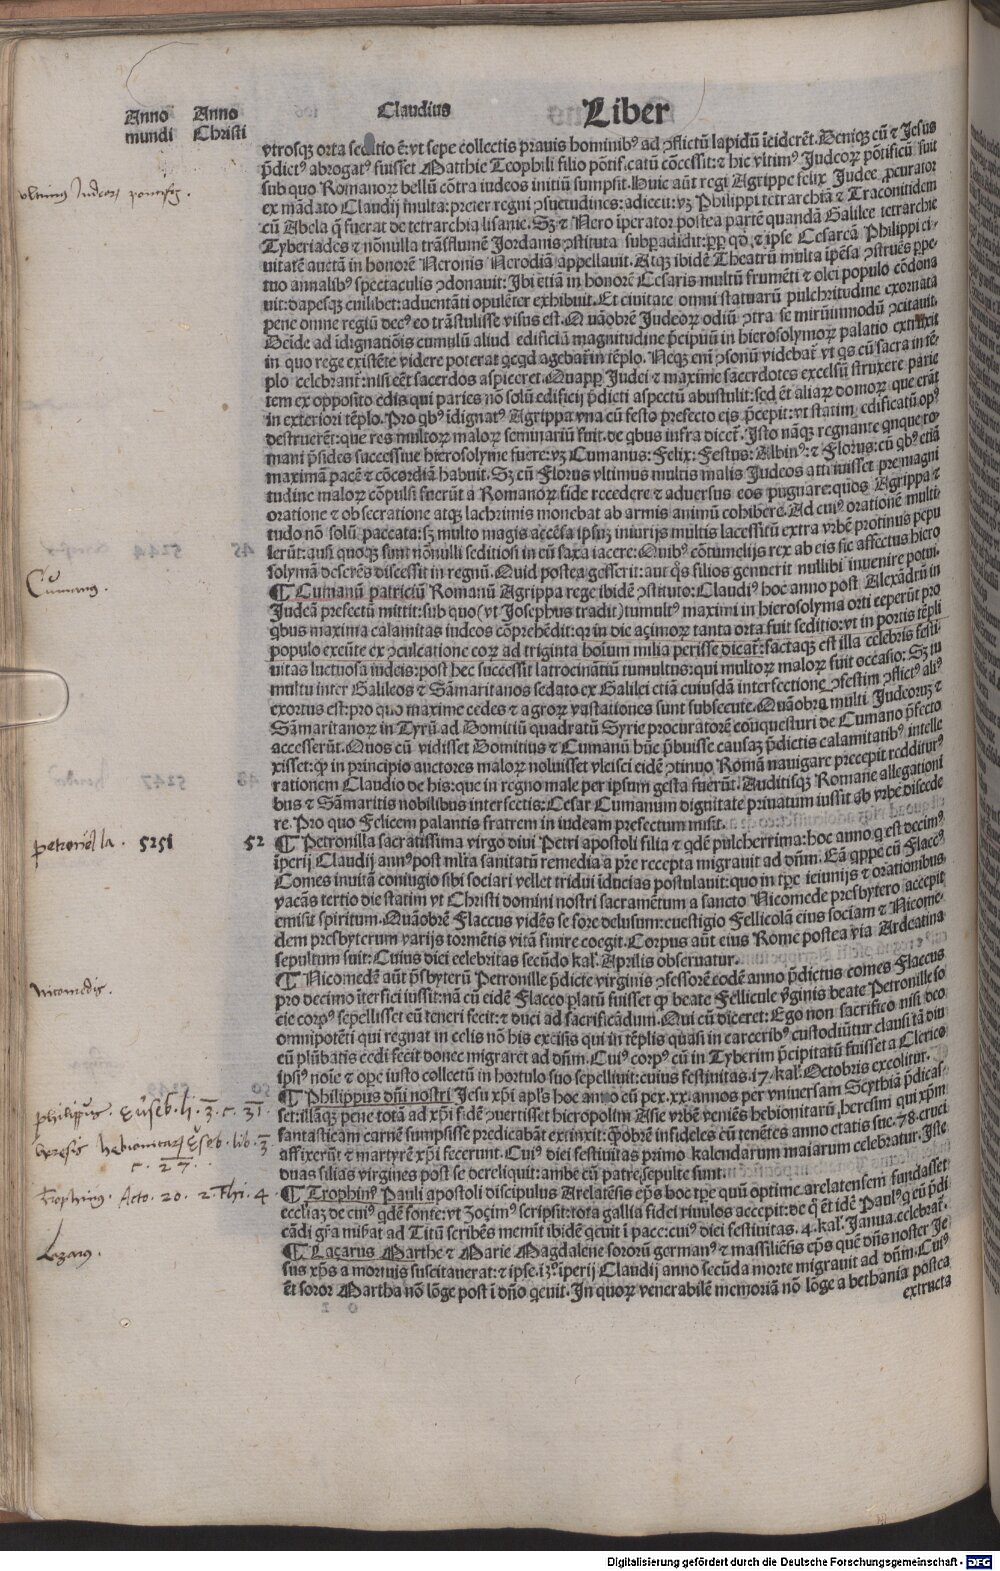 Anno mundi
Anno Christi
Claudius
Liber
vtrosqʒ orta seditio ē: vt sepe collectis prauis hominibꝰ ad ꝯflictū lapidū īciderēt. Deniqʒ cū ⁊ Jesus
p̄dictꝰ abrogatꝰ fuisset Matthie Teophili filio pōtificatū cōcessit: ⁊ hic vltimꝰ Judeoꝝ pōtificū fuit
sub quo Romanoꝝ bellū cōtra iudeos initiū sumpsit. Huic aūt regi Agrippe felix Judee ꝓcurator
ex mādato Claudij multa: preter regni ꝯsuetudines: adiecit: vʒ Philippi tetrarchiā ⁊ Traconitidem
cū Abela q̄ fuerat de tetrarchia lisanie. Sʒ ⁊ Nero īperator postea partē quandā Galilee tetrarchie
Tyberiades ⁊ nōnulla trāsflumē Jordanis ꝯstituta subꝑadidit: ꝓpṗ qd̄ ⁊ ipse Cesareā Philippi ci-
uitatē auctā in honorē Neronis Nerodiā appellauit. Atqʒ ibidē Theatrū multa īpēsa ꝯstrués ꝑpe-
tuo annalibꝰ spectaculis ꝯdonauit: Ibi etiā in honorē Cesaris multū frumēti ⁊ olei populo cōdona
uit: dapesqʒ cuilibet: aduentāti opulēter exhibuit. Et ciuitatē omni statuarū pulchritudine exornata
pene omne regiū decꝰ eo trāstulisse visus est. Quāobrē Judeoꝝ odiū ꝯtra se mirūinmodū ꝯcitauit.
Deide ad īdignatiōis cumulū aliud edificiū magnitudine p̄cipuū in hierosolymoꝝ palatio extruxit
in quo rege existēte videre poterat qcqd agebat̄ in tēplo. Neqʒ enī ꝯsonū videbat̄ vt qs cū sacra in tē-
plo celebrant̄: nisi eēt sacerdos aspiceret. Quapp̄ Judei ⁊ maxime sacerdotes excelsū struxere parie
tem ex opposito edis qui paries nō solū edificij p̄dicti aspectū abustulit: sed ēt aliaꝝ domoꝝ que erāt
in exteriori tēplo. Pro qbꝰ īdignatꝰ Agrippa vna cū festo prefecto eis p̄cepit: vt statim edificatū opꝰ
destruerēt: que res multoꝝ maloꝝ seminariū fuit. de qbus infra dicet̄. Isto nāqʒ regnante qnque ro-
mani p̄sides successiue hierosolyme fuere: vʒ Cumanus: Felix: Festus: Albinꝰ: ⁊ Florus: cū qbꝰ etiā
maximā pacē ⁊ cōcordiā habuit. Sʒ cū Florus vltimus multis malis Judeos attriuisset pre magni
tudine maloꝝ cōpulsi fuerūt a Romanoꝝ fide recedere ⁊ aduersus eos pugnare: quos Agrippa ⁊
oratione ⁊ obsecratione atqʒ lachrimis monebat ab armis animū cohibere. Ad cuiꝰ orationē multi-
tudo nō solū paccata: sʒ multo magis accēsa ipsuʒ iniurijs multis lacessitū extra vrbē protinus pepu
lerūt: ausi quoqʒ sunt nōnulli seditiosi in eū saxa iacere: Quibꝰ cōtumelijs rex ab eis sic affectus hiero
solymā deserēs discessit in regnū. Quid postea gesserit: aut qs filios genuerit nullibi inuenire potui.
¶ Cumanū patriciū Romanū Agrippa rege ibidē ꝯstituto: Claudiꝰ hoc anno post Alexādrū in
Judeā prefectū mittit: sub quo (vt Josephus tradit) tumultꝰ maximi in hierosolyma orti ceperūt pro
qbus maxima calamitas iudeos cōprehēdit: qr in die açimoꝝ tanta orta fuit seditio: vt in portis tēpli
populo exeūte ex ꝯculcatione eoꝝ ad triginta hoīum milia perisse dicat̄: factaqʒ est illa celebris festi-
uitas luctuosa iudeis: post hec successit latrocinātiū tumultus: qui multoꝝ maloꝝ fuit occasio: Sʒ tu
multu inter Galileos ⁊ Sāmaritanos sedato ex Galilei etiā cuiusdā interfectione ꝯfestim ꝯflictꝰ aliꝰ
exortus est: pro quo maxime cedes ⁊ agroꝝ vastationes sunt subsecute. Quāobrā multi Judeoruʒ ⁊
Sāmaritanoꝝ in Tyrū ad Domitiū quadratū Syrie procuratorē cōquesturi de Cumano p̄fecto
accesserūt. Quos cū vidisset Domitius ⁊ Cumanū hūc p̄buisse causaʒ p̄dictis calamitatibꝰ intelle
xisset: ꝙ in principio auctores maloꝝ noluisset vlcisci eidē ꝯtinuo Romā nauigare precepit redditurꝰ
rationem Claudio de his: que in regno male per ipsum gesta fuerūt. Auditisqʒ Romane allegationi
bus ⁊ Sāmaritis nobilibus interfectis: Cesar Cumanum dignitate priuatum iussit ab vrbe discede
re. Pro quo Felicem palantis fratrem in iudeam prefectum misit.
5251 52 ¶ Petronilla sacratissima virgo diui Petri apostoli filia ⁊ qdē pulcherrima: hoc anno q est decimꝰ
īperij Claudij annꝰ post mlta sanitatū remedia a p̄re recepta migrauit ad dn̄m. Eā qppe cū Flaccꝰ
Comes inuitā coniugio sibi sociari vellet tridui īducias postulauit: quo in tp̄e ieiunijs ⁊ orationibus
vacās tertio die statim vt Christi domini nostri sacramētum a sancto Nicomede presbytero accepit
emisit spiritum. Quāobrē Flaccus vidēs se fore delusum: euestigio Fellicolā eius sociam ⁊ Nicome-
dem presbyterum varijs tormētis vitā finire coegit. Corpus aūt eius Rome postea via Ardeatina
sepultum fuit: Cuius diei celebritas secūdo kal̄. Aprilis obseruatur.
¶ Nicomedē aūt p̄sbyterū Petronille p̄dicte virginis ꝯfessorē eodē anno p̄dictus comes Flaccus
pro decimo īterfici iussit: nā cū eidē Flacco platū fuisset ꝙ beate Fellicule v̄ginis beate Petronille so
cie corpꝰ sepellisset eū teneri fecit: ⁊ duci ad sacrificādum. Qui cū diceret: Ego non sacrifico nisi deo
omnipotēti qui regnat in celis nō his excisis qui in tēplis quasi in carceribꝰ custodiūtur clausi tā diu
eū plūbatis cedi fecit donec migraret ad dn̄m. Cuiꝰ corpꝰ cū in Tyberim p̄cipitatū fuisset a Clerico
ipsiꝰ noīe ⁊ ope iusto collectū in hortulo suo sepelliuit: cuius festiuitas. 17. kal̄. Octobris excolitur.
¶ Philippus dn̄i nostri Jesu xp̄i apl̄s hoc anno cū per. xx. annos per vniuersam Scythiā p̄dicas-
set: illāqʒ pene totā ad xp̄i fidē ꝯuertisset hieropolim Asie vrbē veniēs hebionitarū heresim qui xp̄m
fantasticam carnē sumpsisse predicabāt extinxit: ꝙobrē infideles eū tenētes anno etatis sue. 78. cruci
affixerūt ⁊ martyrē xp̄i fecerunt. Cuiꝰ diei festiuitas primo kalendarum maiarum celebratur. Iste
duas filias virgines post se dereliquit: ambe cū patre sepulte sunt.
¶ Trophinꝰ Pauli apostoli discipulus Arelatēsis ep̄s hoc tp̄e quū optime arelatensem fundasset
eccliaʒ de cuiꝰ qdē fonte: vt Zoçimꝰ scripsit: tota gallia fidei riuulos accepit: de q̄ ēt idē Paulꝰ q eū p̄di
cādi gr̄a misat ad Titū scribēs memīt ibidē qeuit ī pace: cuiꝰ diei festiuitas. 4. kal̄. Janua. celebrat̄.
¶ Laçarus Marthe ⁊ Marie Magdalene sororū germanꝰ ⁊ massiliēsis ep̄s quē dn̄s noster Je
sus xp̄s a mortuis suscitauerat: ⁊ ipse. i3º. īperij Claudij anno secūda morte migrauit ad dn̄m. Cuiꝰ
ēt soror Martha nō lōge post ī dn̄o qeuit. In quoꝝ venerabilē memoriā nō lōge a bethania postea
extructa
vltimus Judeoꝝ pontifex.
Cumanus.
petronella.
nicomedis.
philippus. Euseb. li. 3. c. 31
heresis hebionitarꝝ Euseb. lib. 3
c. 27.
Trophimus. Acto. 20. 2. Thi. 4.
Lazarus.
Digitalisierung gefördert durch die Deutsche Forschungsgemeinschaft - DFG